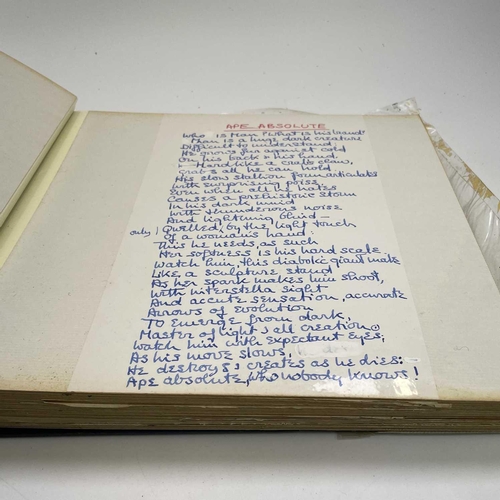 APE ABSOLUTE
Who is Man? What is his brand?
Man is a huge dark creature
Difficult to understand
He grows fur against cold
On his back & his hand.
Hard like a crab's claw,
Grabs all he can hold
His slow stallion form articulates
With surprising poise,
Even when all he hates
Causes a prehistoric storm
In his dark mind
With thunderous noise
And lightening blind —
only / Quelled, by the light touch
Of a woman's hand:
This he needs, as such
Her softness is his hard scale
Watch him, this diabolic giant male
Like a sculpture stand
As her spark makes him shoot,
With interstella sight
And accute sensation, accurate
Arrows of evolution
To emerge from dark,
Master of light & all creation
Watch him with expectant eyes;
As his move slows,
He destroys & creates as he dies:
Ape absolute, who nobody knows!